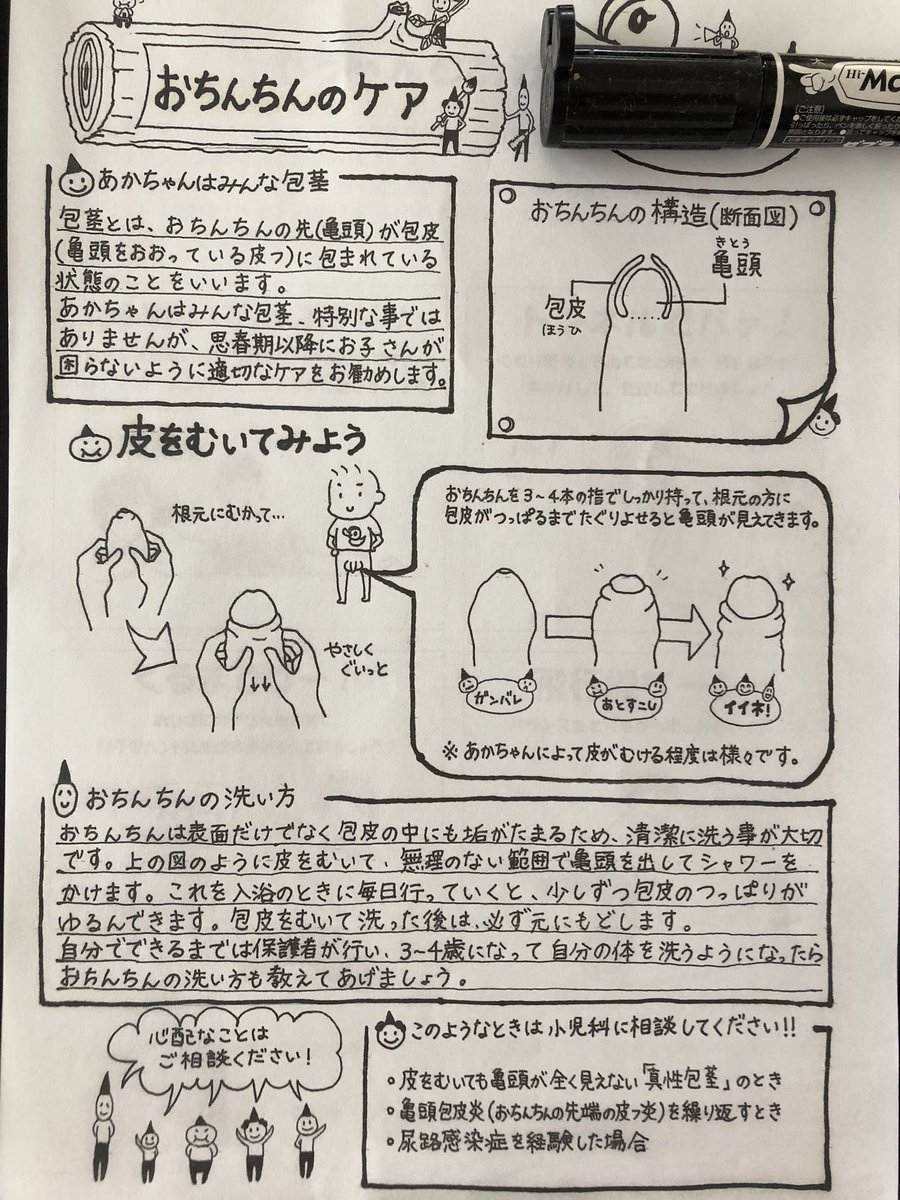 おちんちんのケア
Hi-Mc
[ご注意]
あかちゃんはみんな包茎
包茎とは、おちんちんの先(亀頭)が包皮
(亀頭をおおっている皮フ)に包まれている
状態のことをいいます。
あかちゃんはみんな包茎、特別な事では
ありませんが、思春期以降にお子さんが
困らないように適切なケアをお勧めします。
おちんちんの構造(断面図)
きとう
亀頭
包皮
ほうひ
皮をむいてみよう
根元にむかって…
やさしく
ぐいっと
おちんちんを3~4本の指でしっかり持って、根元の方に
包皮がつっぱるまでたぐりよせると亀頭が見えてきます。
ガンバレ
あとすこし
イイネ!
※あかちゃんによって皮がむける程度は様々です。
おちんちんの洗い方
おちんちんは表面だけでなく包皮の中にも垢がたまるため、清潔に洗う事が大切
です。上の図のように皮をむいて、無理のない範囲で亀頭を出してシャワーを
かけます。これを入浴のときに毎日行っていくと、少しずつ包皮のつっぱりが
ゆるんできます。包皮をむいて洗った後は、必ず元にもどします。
自分でできるまでは保護者が行い、3~4歳になって自分の体を洗うようになったら
おちんちんの洗い方も教えてあげましょう。
心配なことは
ご相談ください!
このようなときは小児科に相談してください!!
・皮をむいても亀頭が全く見えない「真性包茎」のとき
・亀頭包皮炎(おちんちんの先端の皮フ炎)を繰り返すとき
・尿路感染症を経験した場合